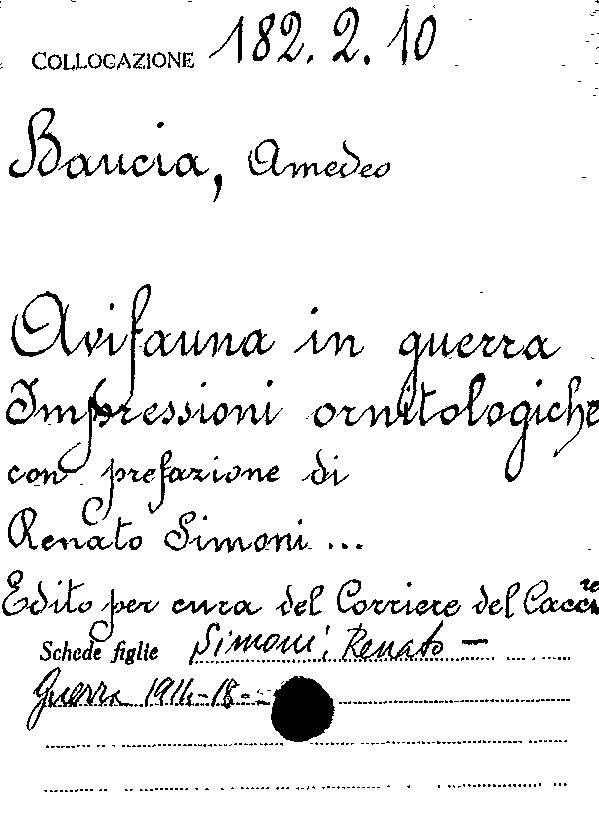 COLLOCAZIONE 182. 2. 10
Baucia, Amedeo
Avifauna in guerra
Impressioni ornitologiche
con prefazione di
Renato Simoni ...
Edito per cura del Corriere del
Schede figlie Simoni, Renato —
Guerra 1914-18-